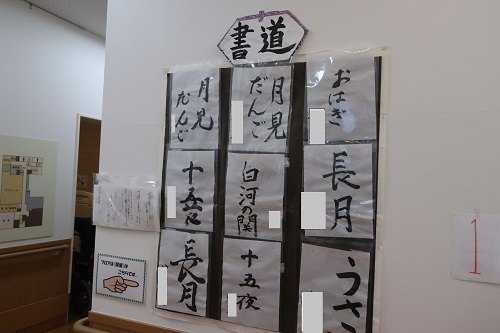 書道
おはぎ
長月
うさ
月見
だんご
白河の関
十五夜
月見
だんご
十五夜
長月
こちらです。
1